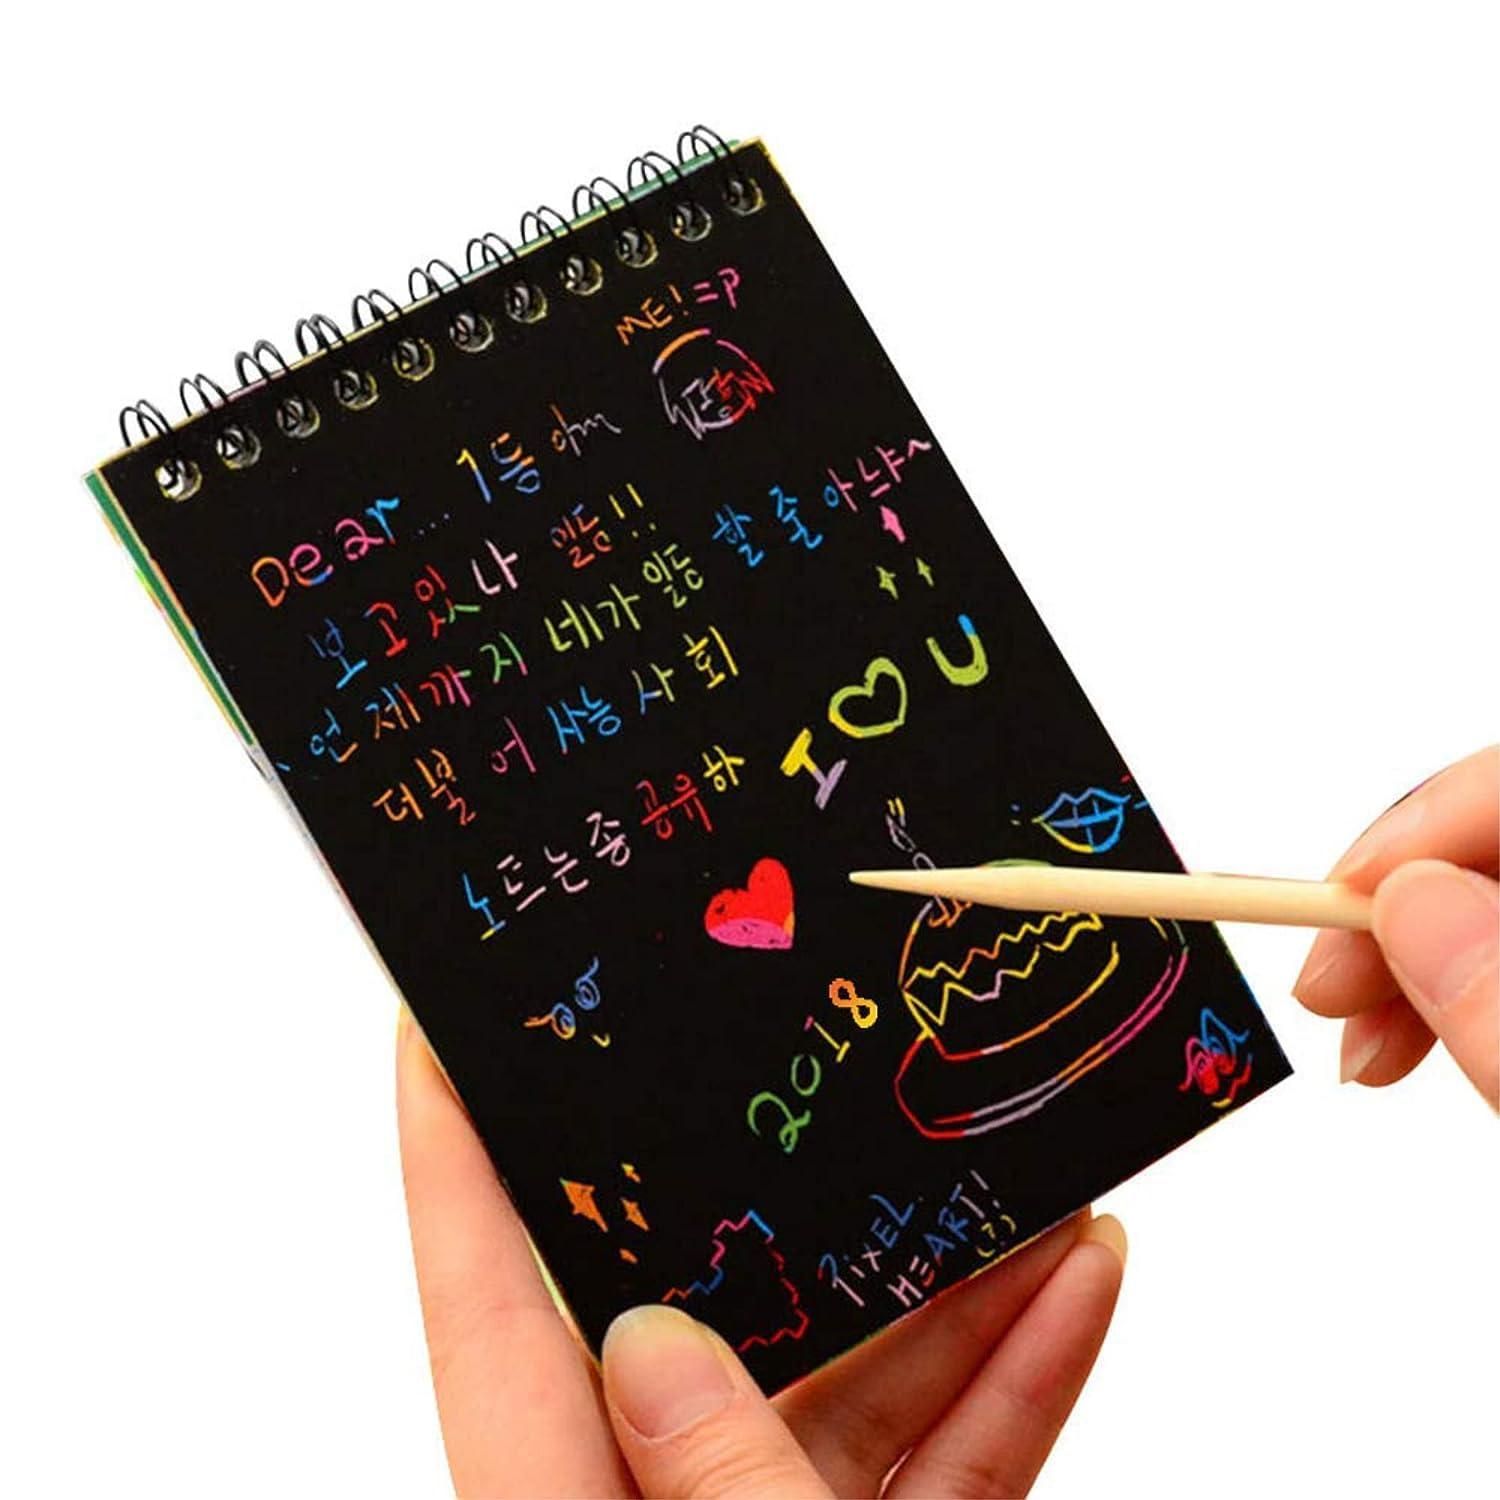 ME! =P
Dear... 1등 아m
보고있나 일등!!
언제까지 네가 일등 할 줄 아냐~
더불어 사능 사회
노트는 좀 공유하
I ♡ U
2018
PIXEL
HEART!
(?)